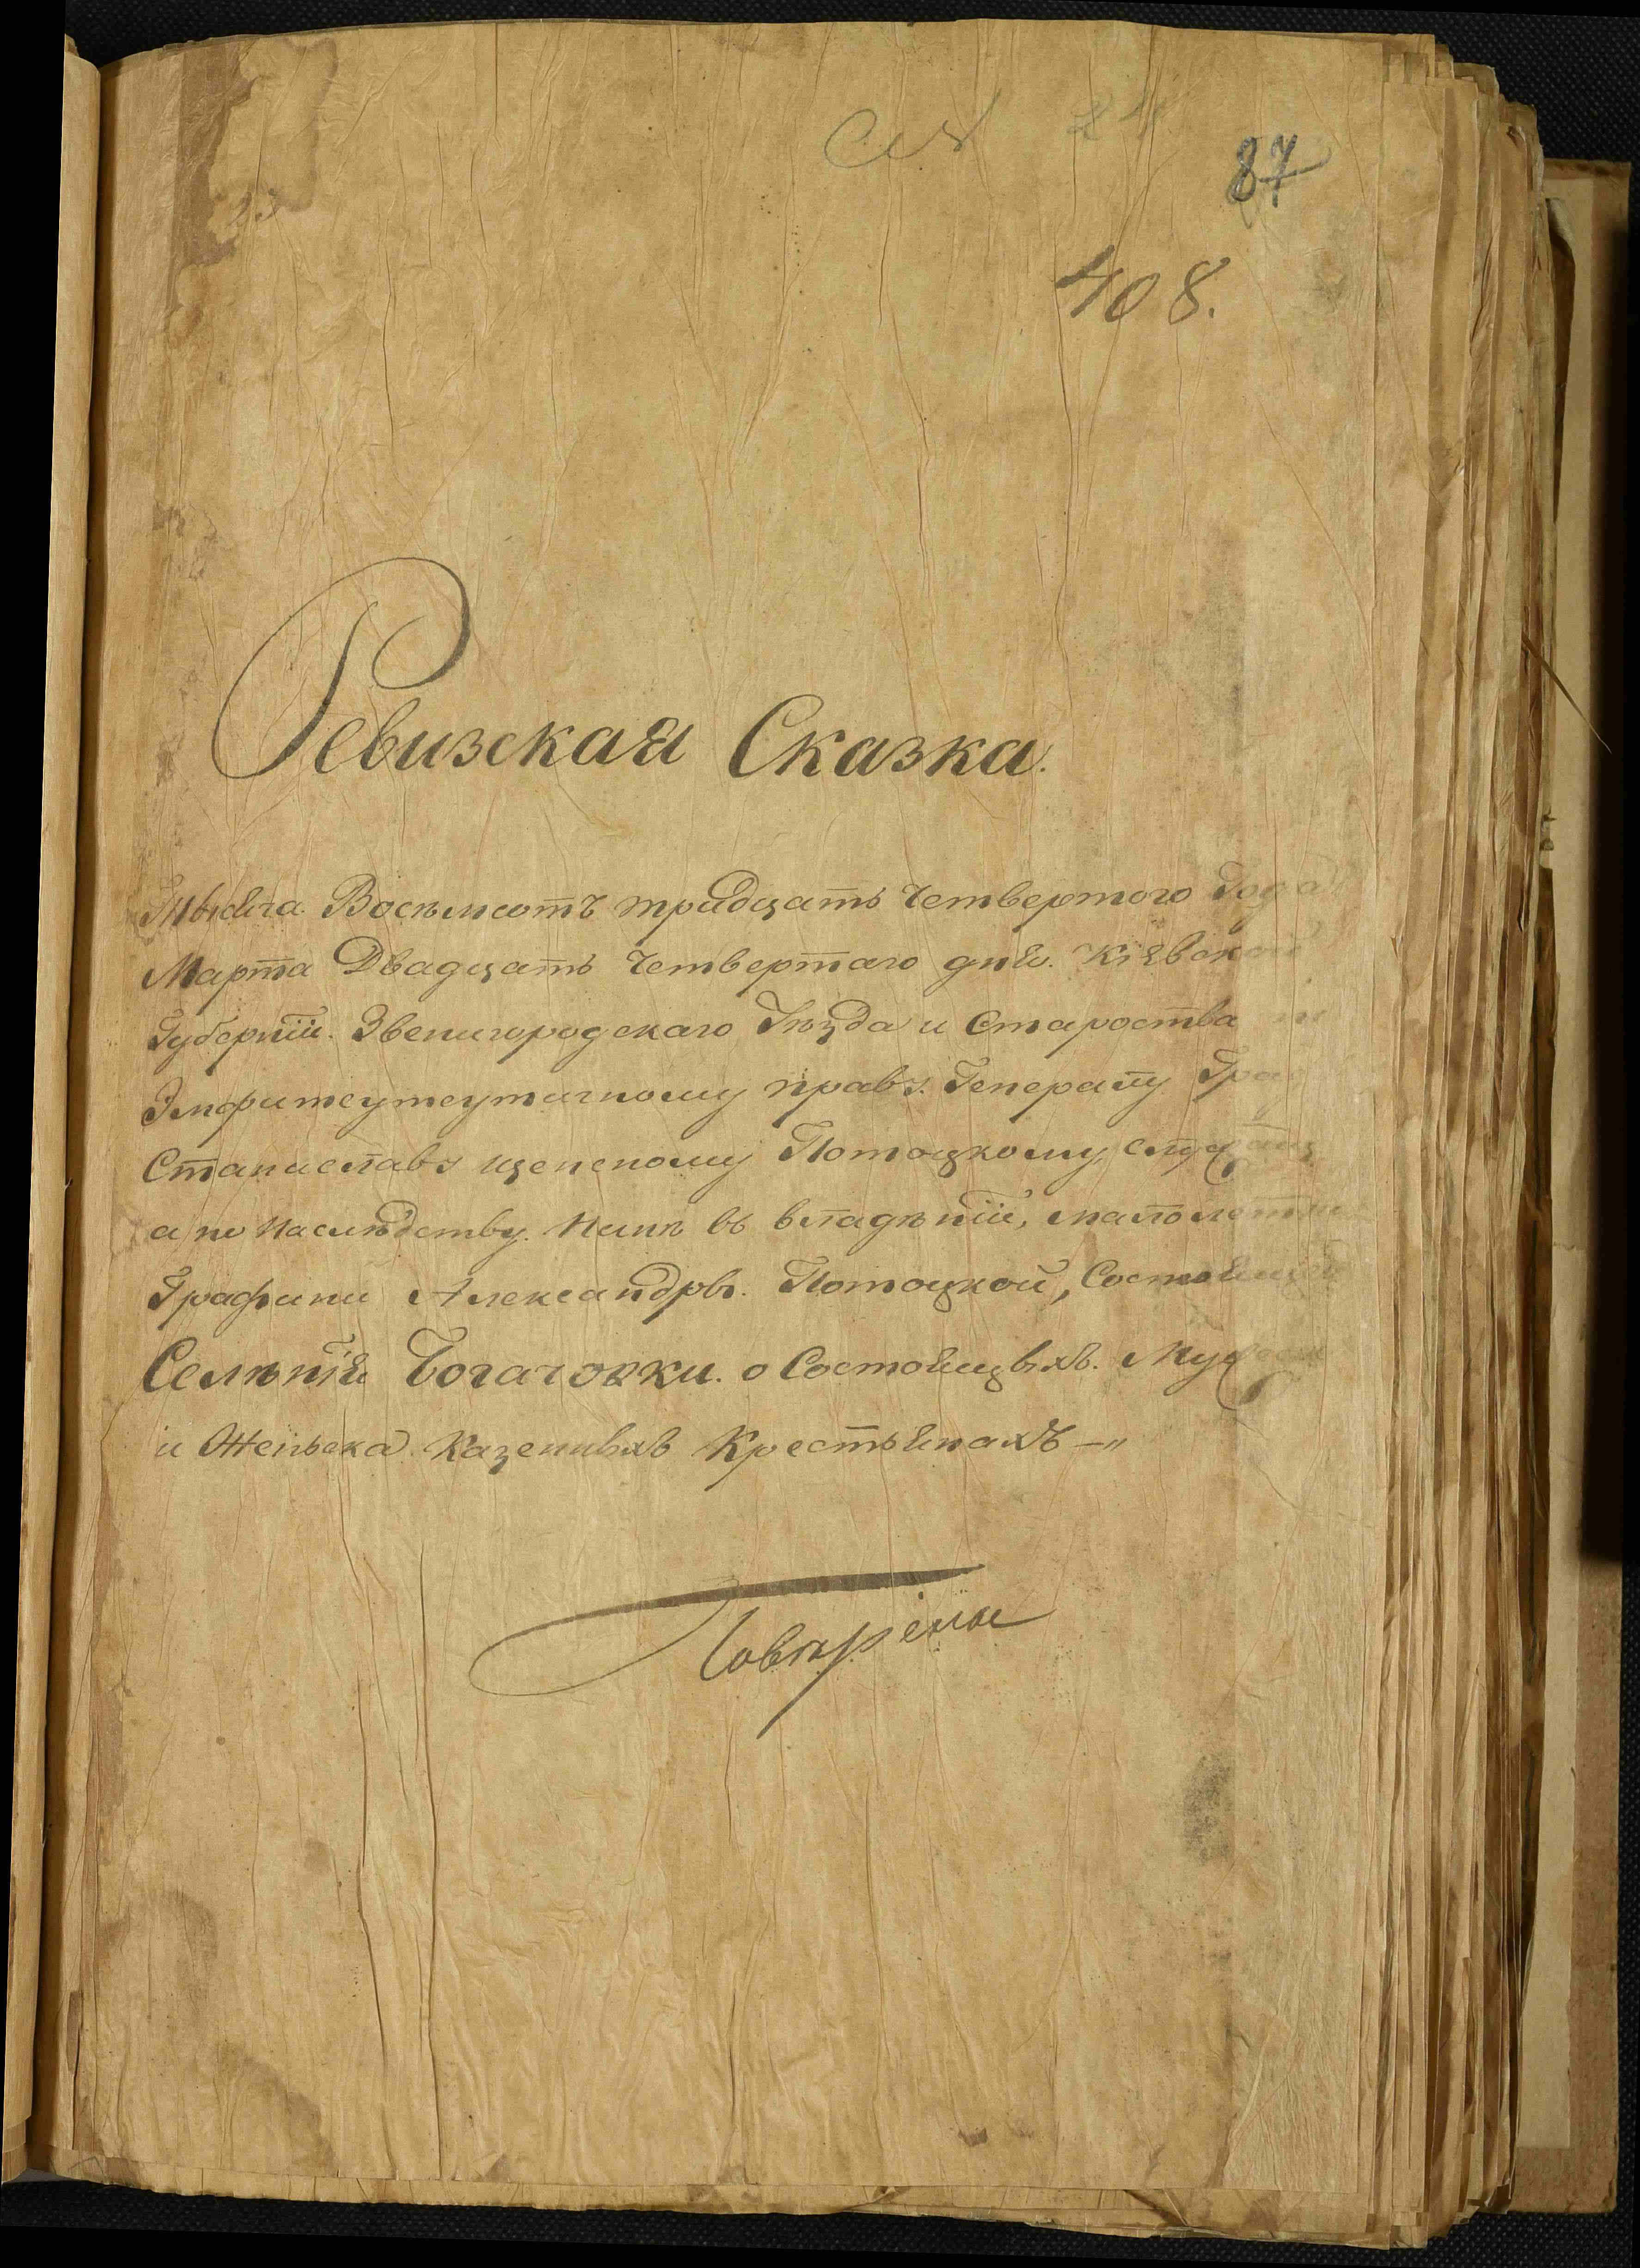 87
408.
Ревизская Сказка.
Тысяча Восемьсотъ тридцать Четвертого Года
Марта Двадцать Четвертаго дня. Кіевской
Губерніи. Звенигородскаго Уѣзда и Староства по
Эмфитеутеутичному праву. Генералу
Станиславу щенсному Потоцкому,
а по наслѣдству. Нынѣ въ владѣніи, малолетной
Графини Александры. Потоцкой, Состоящей
Селѣнія Богачовки. о Состоящыхъ. Мужеска
и Женьска Казенныхъ Крестьянахъ —"